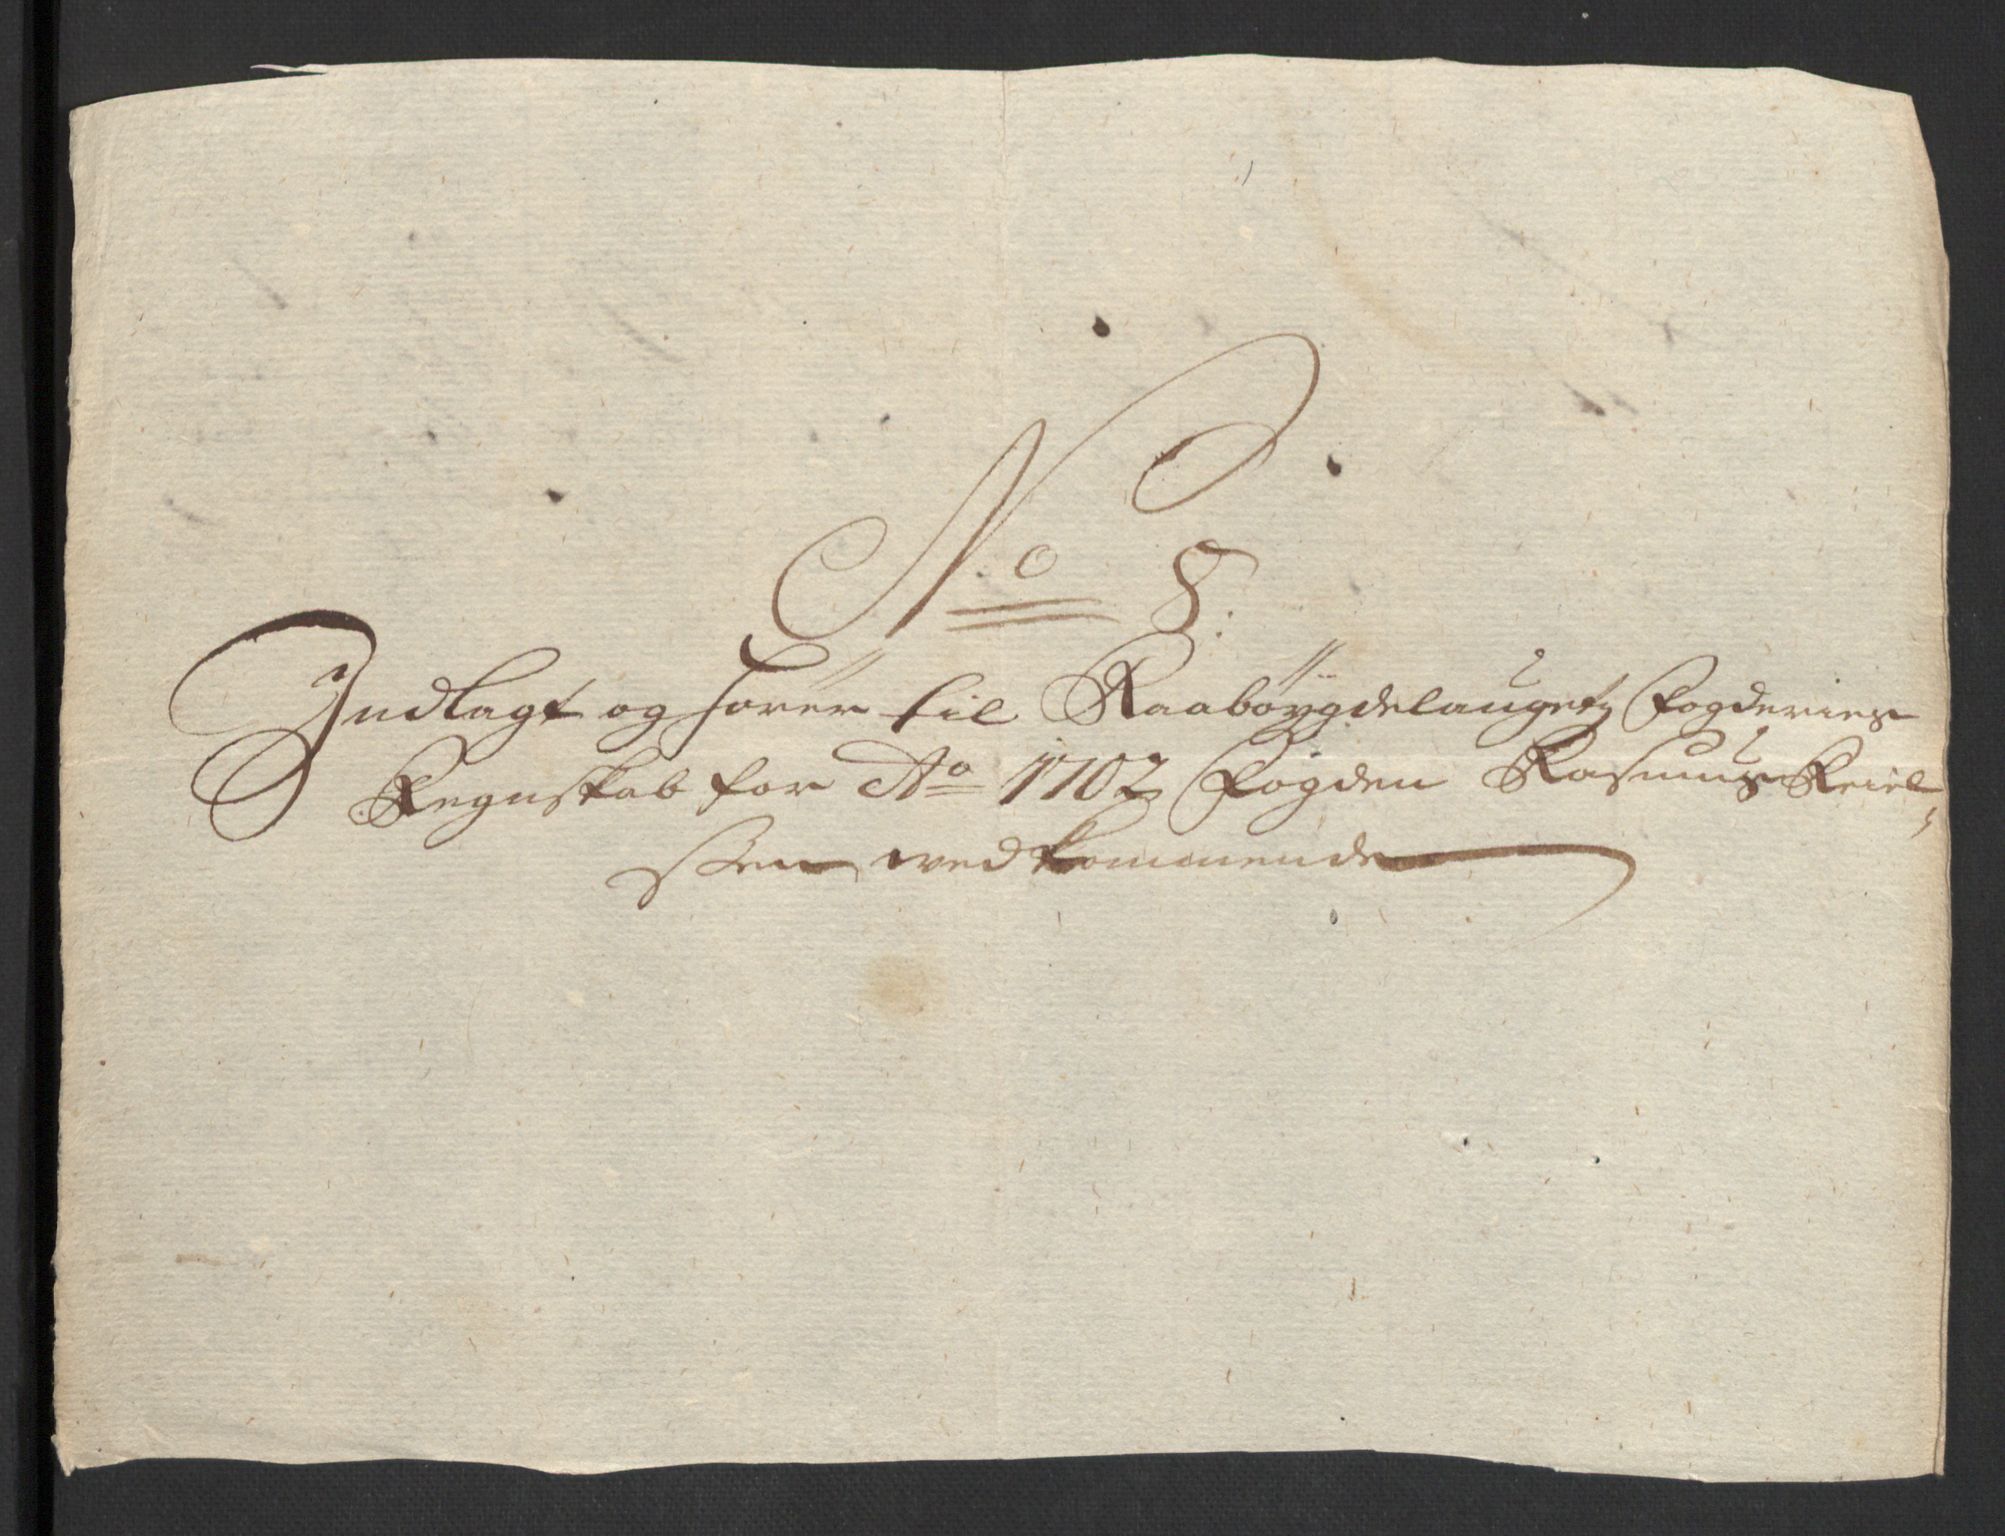 No 8.
Indlagt og hører til Raabøygdelaugetz Fogderies
Regnskab for Ao 1702 Fogden Rasmus Keiel-
ssen wedkommende